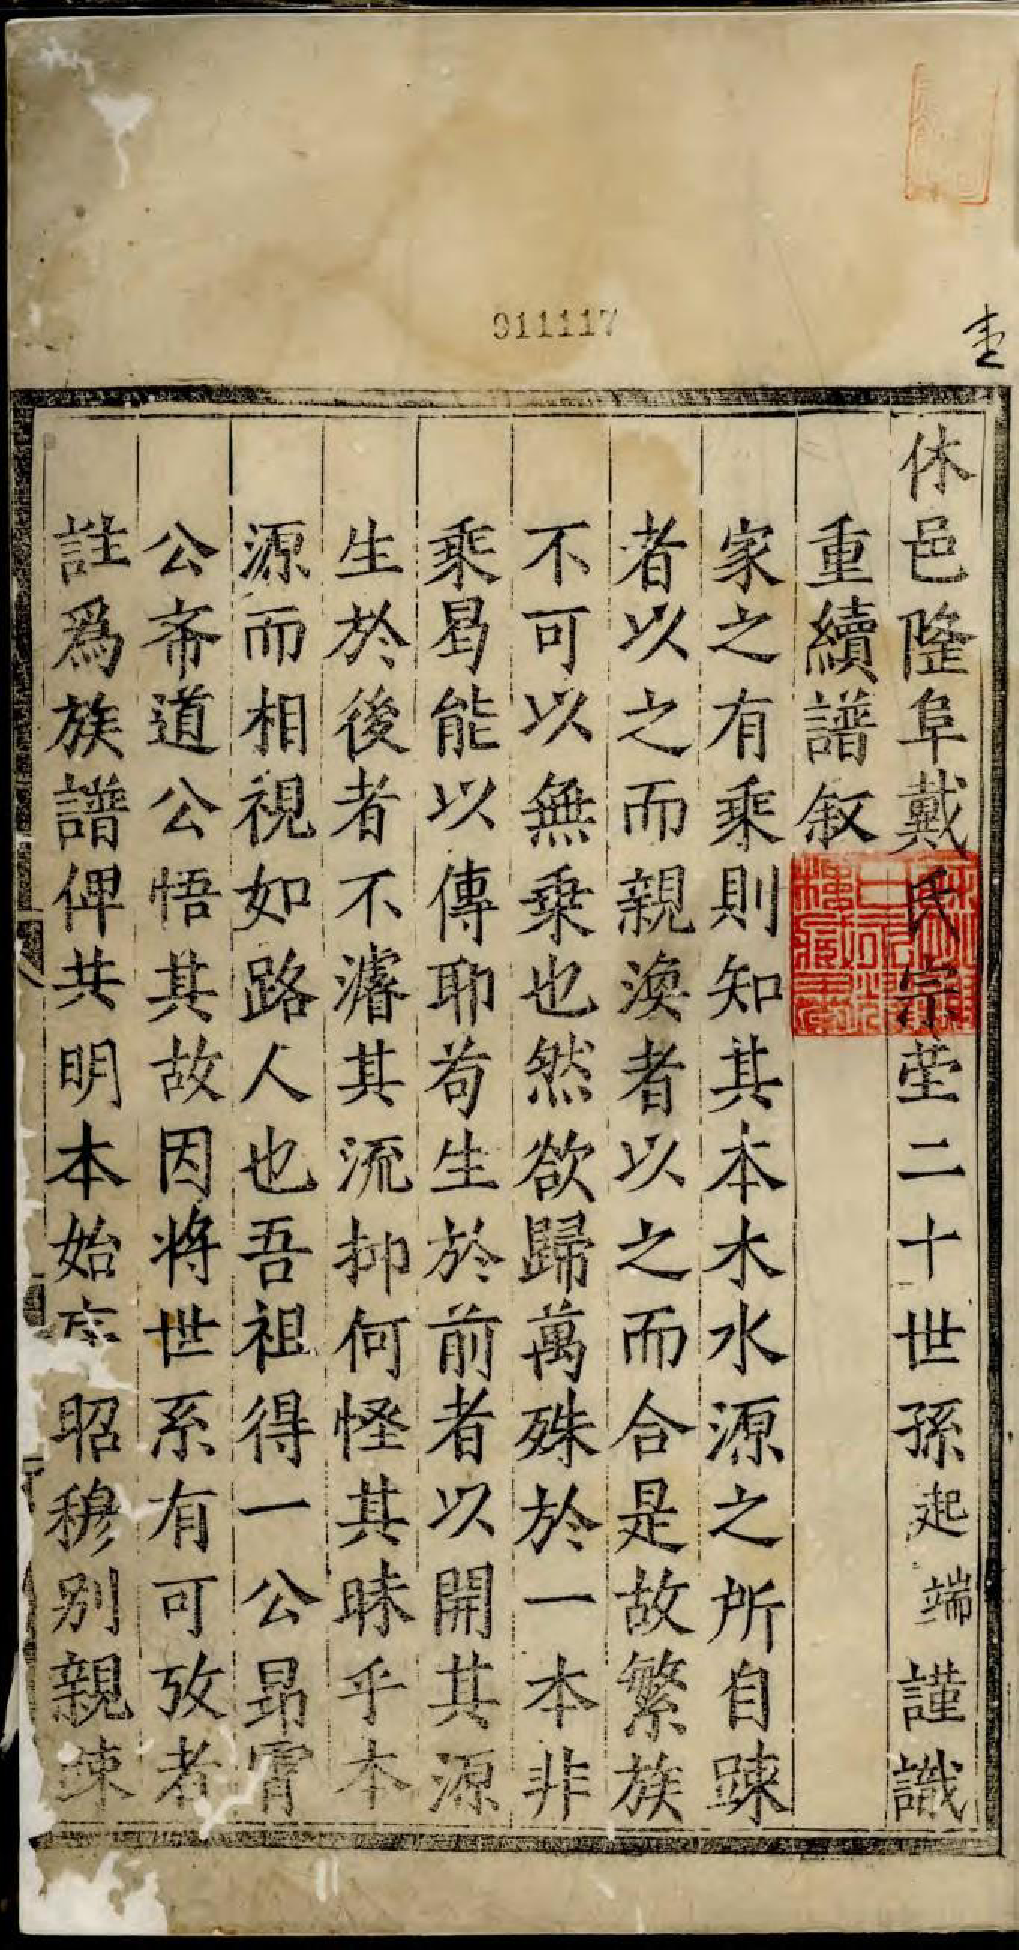 911117
休邑隆阜戴氏宗塋二十世孫起端謹識
重續譜叙
家之有乘則知其本木水源之所自踈
者以之而親渙者以之而合是故繁族
不可以無乗也然欲歸萬殊於一本非
乘曷能以傳耶茍生於前者以開其源
生於後者不濬其流抑何怪其昧乎本
源而相視如路人也吾祖得一公昂霄
公斋道公悟其故因将世系有可攷者
註爲族譜俾共明本始序昭穆别親踈